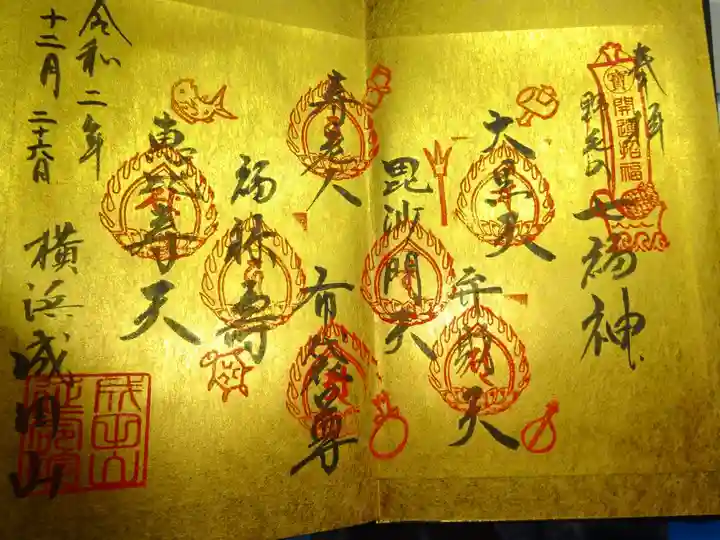 奉拝
寳
開運招福
野毛の
七福神
大黒天
弁財天
毘沙門天
寿老人
布袋尊
福禄寿
恵比寿天
令和二年
十二月二十六日
横浜成田山